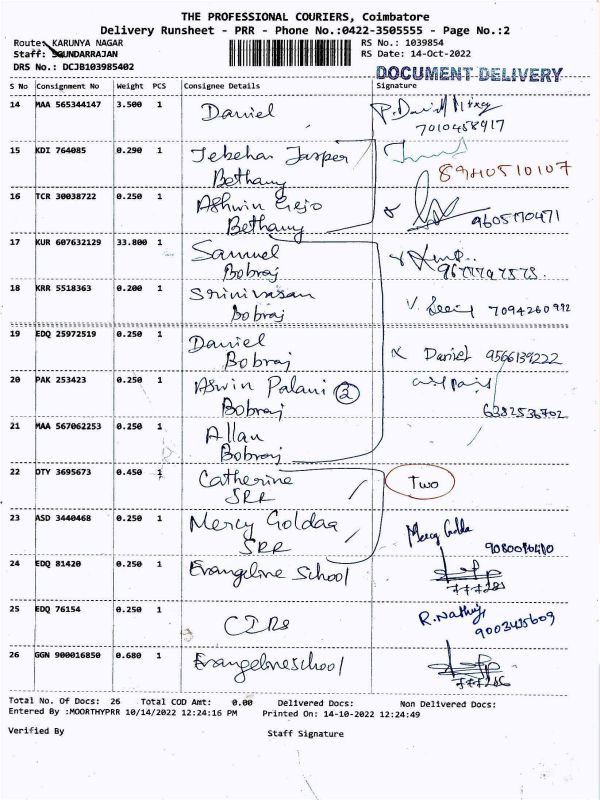 THE PROFESSIONAL COURIERS, Coimbatore
Delivery Runsheet - PRR - Phone No.:0422-3505555 - Page No.:2
Route: KARUNYA NAGAR
RS No.: 1039854
Staff: SOUNDARRAJAN
RS Date: 14-Oct-2022
DRS No.: DCJB103985402
DOCUMENT DELIVERY
S No Consignment No Weight PCS Consignee Details Signature
14 MAA 565344147 3.500 1 Daniel
7010458917
15 KDI 764085 0.290 1 Jebehar Jasper
Bethany
8940510107
16 TCR 30038722 0.250 1 Ashwin Gejo
Bethany
9605170471
17 KUR 607632129 33.800 1 Samuel
Bobraj
18 KRR 5518363 0.200 1 Srinivasan
Bobraj
7094260992
19 EDQ 25972519 0.250 1 Daniel
Bobraj
Daniel 9566139222
20 PAK 253423 0.250 1 Aswin Palani 2
Bobraj
6382536702
21 MAA 567062253 0.250 1 Allan
Bobraj
22 OTY 3695673 0.450 1 Catherine
SRR
Two
23 ASD 3440468 0.250 1 Mercy Goldaa
SRR
Mercy Golda
24 EDQ 81420 0.250 1 Evangeline School
25 EDQ 76154 0.250 1
9003435609
26 GGN 900016850 0.680 1 Evangelineschool
Total No. Of Docs: 26 Total COD Amt: 0.00 Delivered Docs: Non Delivered Docs:
Entered By :MOORTHYPRR 10/14/2022 12:24:16 PM Printed On: 14-10-2022 12:24:49
Verified By
Staff Signature